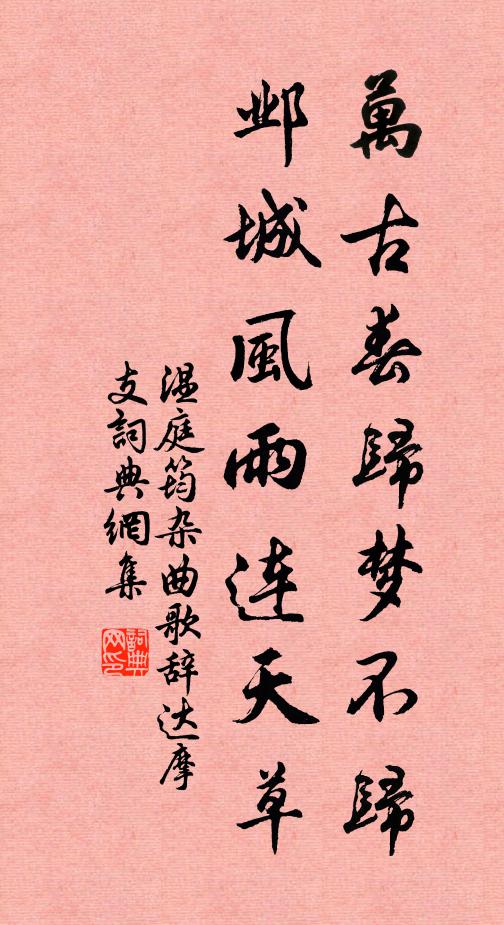 萬古春歸梦不歸
邺城風雨連天草
温庭筠杂曲歌辞达摩
支詞典網集
詞典网印